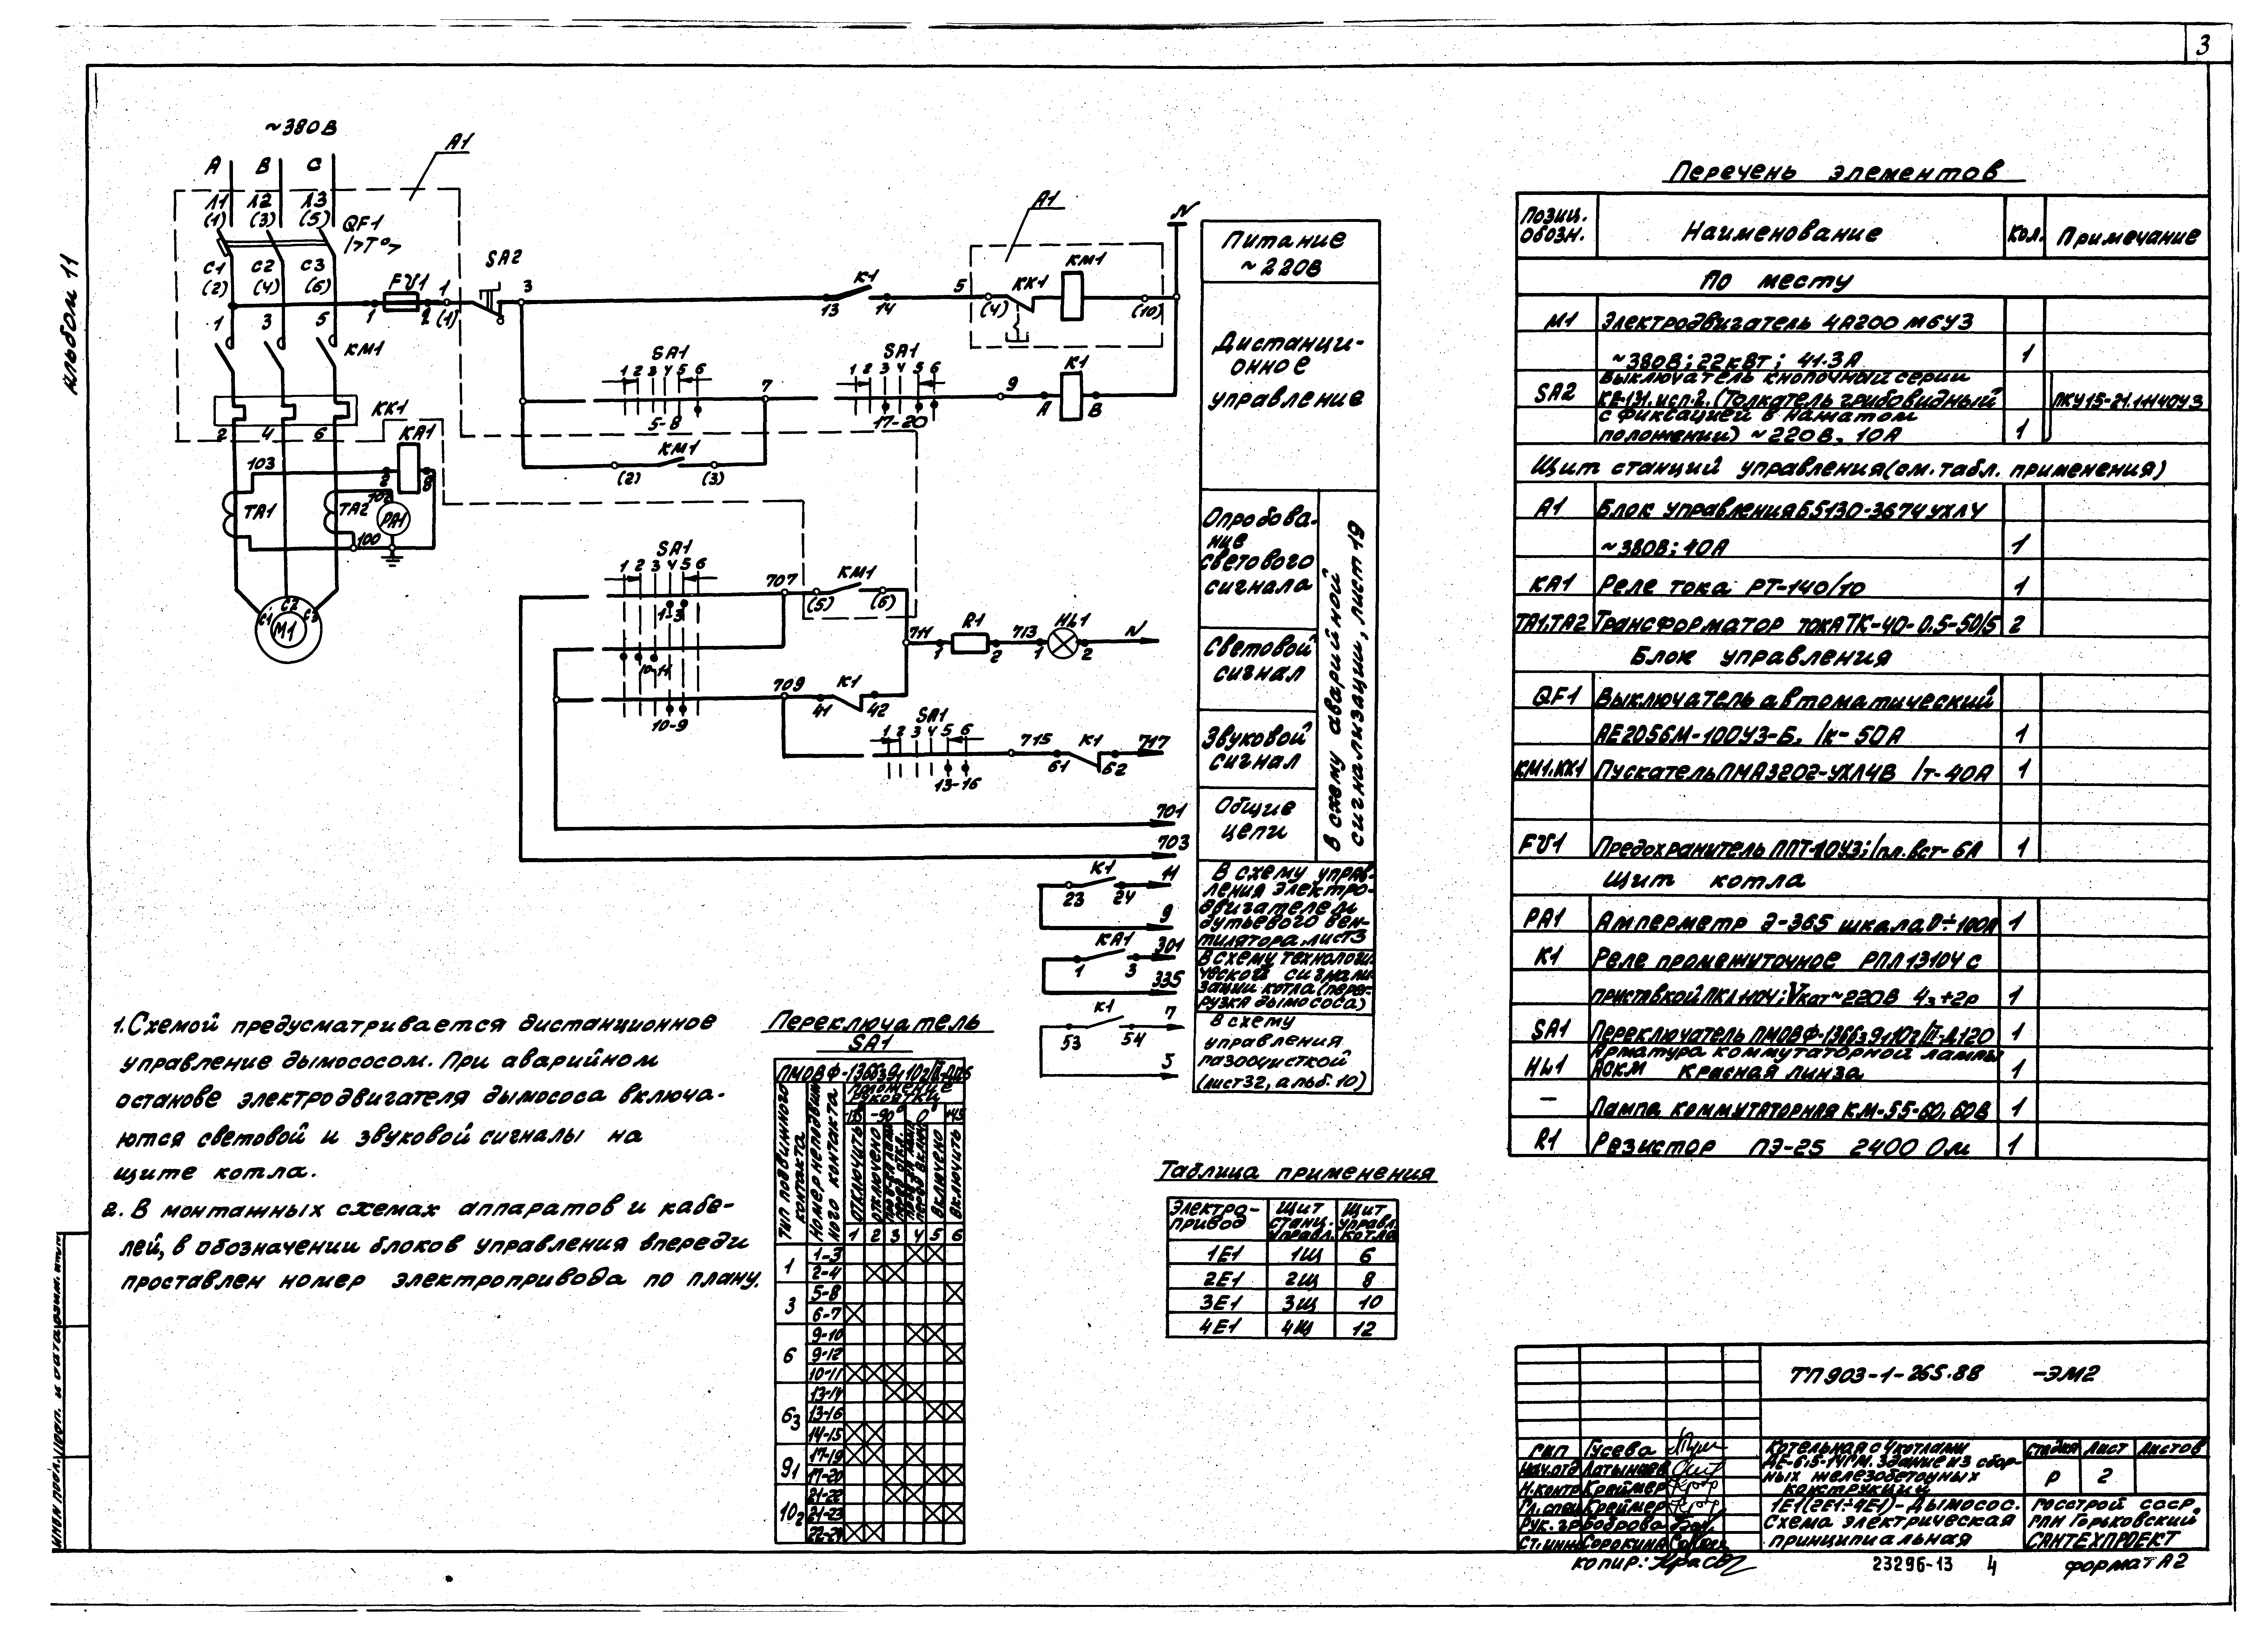 3
Альбом 11
~380В
А В С
А1
Л1 Л2 Л3
(1) (3) (5)
QF1
I>T°>
С1 С2 С3
(2) (4) (6)
FU1
1 2
1
(1)
SA2
3
1 3 5
КМ1
КК1
2 4 6
КА1
103
2 8
ТА1
ТА2
102
РА1
100
С1 С2 С3
М1
К1
13 14
5
А1
(4)
КК1
КМ1
(10)
N
SA1
1 2 3 4 5 6
5-8
7
SA1
1 2 3 4 5 6
17-20
9
К1
А В
КМ1
(2) (3)
SA1
1 2 3 4 5 6
1-3
10-11
10-9
707
КМ1
(5) (6)
711
R1
1 2
713
HL1
1 2
N
709
К1
41 42
SA1
1 2 3 4 5 6
13-16
715
К1
61 62
717
701
703
К1
23 24
11
9
КА1
1 3
301
335
К1
53 54
7
5
Питание
~220В
Дистанци-
онное
управление
Опробова-
ние
светового
сигнала
Световой
сигнал
Звуковой
сигнал
Общие
цепи
В схему аварийной
сигнализации, лист 19
В схему управ-
ления электро-
двигателем
дутьевого вен-
тилятора, лист 3
В схему технологи-
ческой сигнали-
зации котла (перег-
рузка дымососа)
В схему
управления
газоочисткой
(лист 32, альб. 10)
1. Схемой предусматривается дистанционное
управление дымососом. При аварийном
останове электродвигателя дымососа включа-
ются световой и звуковой сигналы на
щите котла.
2. В монтажных схемах аппаратов и кабе-
лей, в обозначении блоков управления впереди
проставлен номер электропривода по плану.
Переключатель
SA1
Тип подвижного
контакта
Номер неподвиж
ного контакта
Положение
рукоятки
-135° -90° 0° +45
Отключить
Отключено
Включено
Включить
1 2 3 4 5 6
1 1-3
2-4
3 5-8
6-7
6 9-10
9-12
10-11
6₃ 13-14
13-16
14-15
9₁ 17-19
17-20
10₂ 21-22
21-23
22-24
Таблица применения
Электро-
привод
Щит
станц.
управл.
Щит
управл.
котла
1Е1 1Щ 6
2Е1 2Щ 8
3Е1 3Щ 10
4Е1 4Щ 12
Перечень элементов
Позиц.
обозн.
Наименование Кол. Примечание
По месту
М1 Электродвигатель 4А200 М6У3
~380В; 22кВт; 41.3А 1
SA2 Выключатель кнопочный серии
КЕ-131. исп.2. (Толкатель грибовидный ПКУ15-21.11140У3
с фиксацией в нажатом
положении) ~220В, 10А 1
Щит станций управления (см. табл. применения)
А1 Блок управления Б5130-3674УХЛ4
~380В; 40А 1
КА1 Реле тока РТ-140/10 1
ТА1,ТА2 Трансформатор тока ТК-40-0.5-50/5 2
Блок управления
QF1 Выключатель автоматический
АЕ2056М-100У3-Б, Iк-50А 1
КМ1.КК1 Пускатель ПМА3202-УХЛ4В Iт-40А 1
FU1 Предохранитель ППТ-10У3; Iпл.вст-6А 1
Щит котла
РА1 Амперметр Э-365 шкала 0÷100А 1
К1 Реле промежуточное РПЛ13104 с
приставкой ПКЛ1104; Vкат~220В 4з+2р 1
SA1 Переключатель ПМОВФ-1366₃9₁10₂/II-Д120 1
HL1 Арматура коммутаторной лампы
АСКМ Красная линза 1
— Лампа коммутаторная КМ-55-60, 60В 1
R1 Резистор ПЭ-25 2400 Ом 1
ТП 903-1-265.88 -ЭМ2
ГИП Гусева
Нач.отд Латынцев
Н.контр Креймер
Гл.спец Креймер
Рук.гр Боброва
Ст.инж Сорокина
Котельная с 4 котлами
ДЕ-6,5-14ГМ. Здание из сбор-
ных железобетонных
конструкций
Стадия Лист Листов
Р 2
1Е1(2Е1÷4Е1)-Дымосос.
Схема электрическая
принципиальная
Госстрой СССР
РПН Горьковский
САНТЕХПРОЕКТ
Копир:
23296-13 4
формат А2
Инв.№ подл. Подп. и дата Взам. инв.№